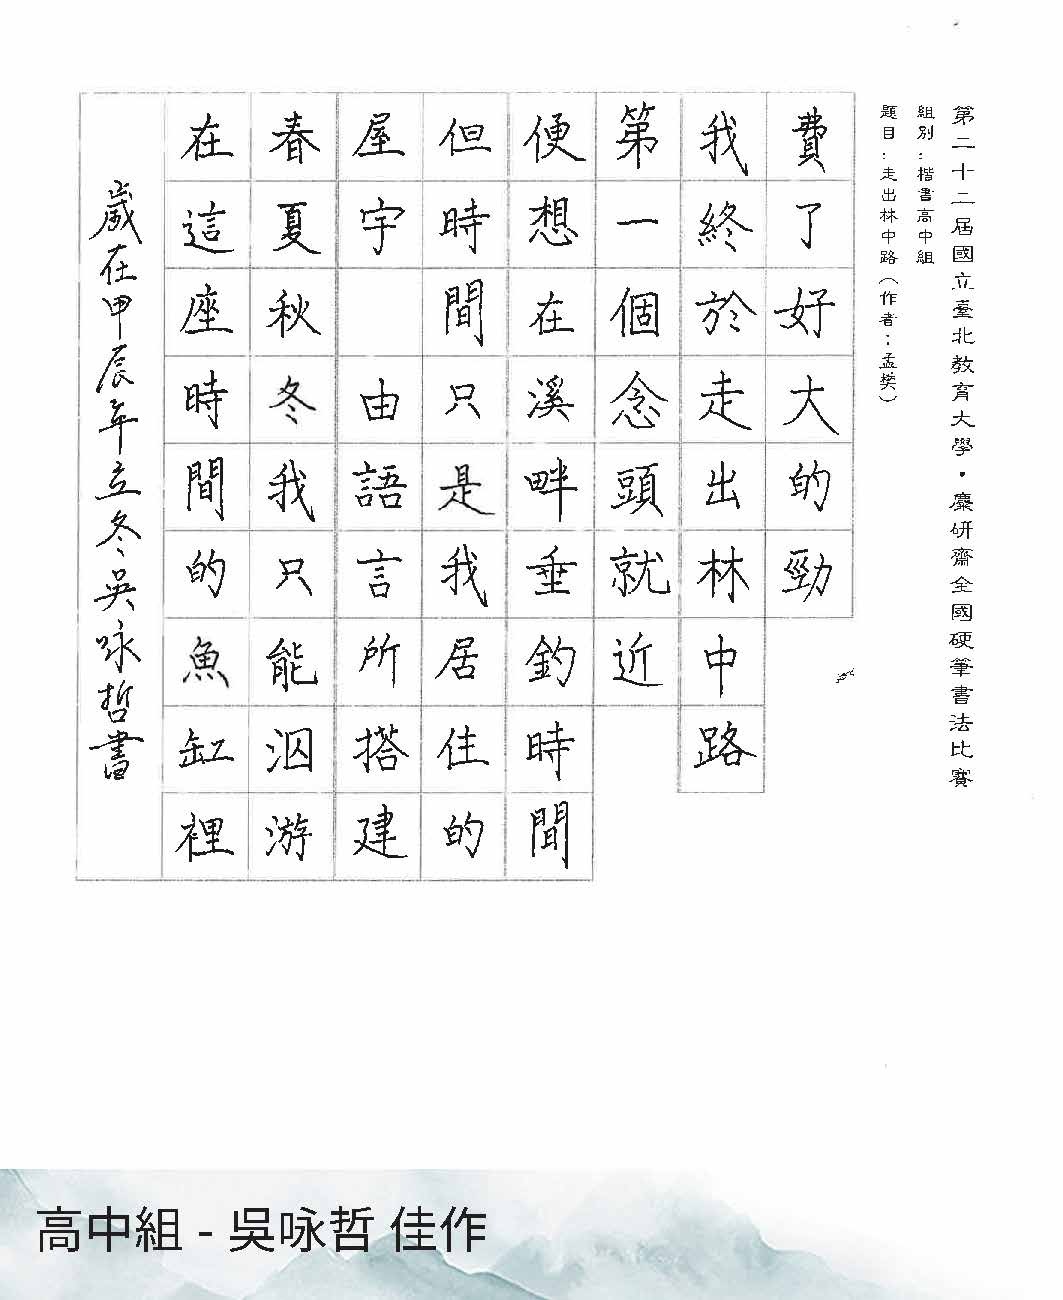 第二十二屆國立臺北教育大學・麋研齋全國硬筆書法比賽
組別：楷書高中組
題目：走出林中路（作者：孟樊）
費了好大的勁
我終於走出林中路
第一個念頭就近
便想在溪畔垂釣時間
但時間只是我居住的
屋宇　由語言所搭建
春夏秋冬我只能泅游
在這座時間的魚缸裡
歲在甲辰年立冬吳咏哲書
高中組 - 吳咏哲 佳作